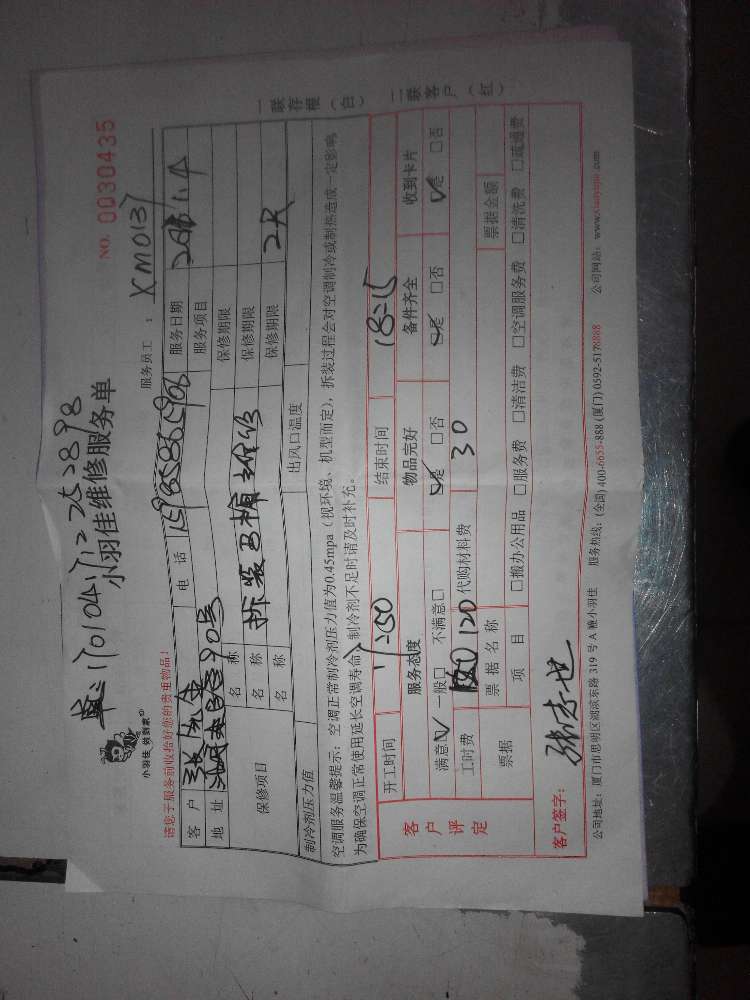 单:170104112252898
小羽佳维修服务单
NO. 0030435
小羽佳 做到家
服务员工 : XM0137
请您于服务前收拾好您的贵重物品!
客 户 电 话 服务日期
地 址 90号 服务项目
保修项目 名 称 保修期限
名 称 拆装马桶维修 保修期限
名 称 保修期限 2天
制冷剂压力值 出风口温度
空调服务温馨提示:空调正常制冷剂压力值为0.45mpa(视环境、机型而定),拆装过程会对空调制冷或制热造成一定影响,
为确保空调正常使用延长空调寿命,制冷剂不足时请及时补充。
一联存根(白) 二联客户(红)
开工时间 17:50 结束时间 18:15
客户评定 服务态度 物品完好 备件齐全 收到卡片
满意☑ 一般□ 不满意□ ☑是 □否 ☑是 □否 ☑是 □否
工时费 120 代购材料费 30
票据 票 据 名 称 票据金额
项 目 □搬办公用品 □服务费 □清洁费 □空调服务费 □清洗费 □疏通费
客户签字:
公司地址:厦门市思明区湖滨东路 319 号 A 幢小羽佳 服务热线:(全国) 400-6655-888 (厦门) 0592-5178868 公司网站:www.xiaoyujia.com